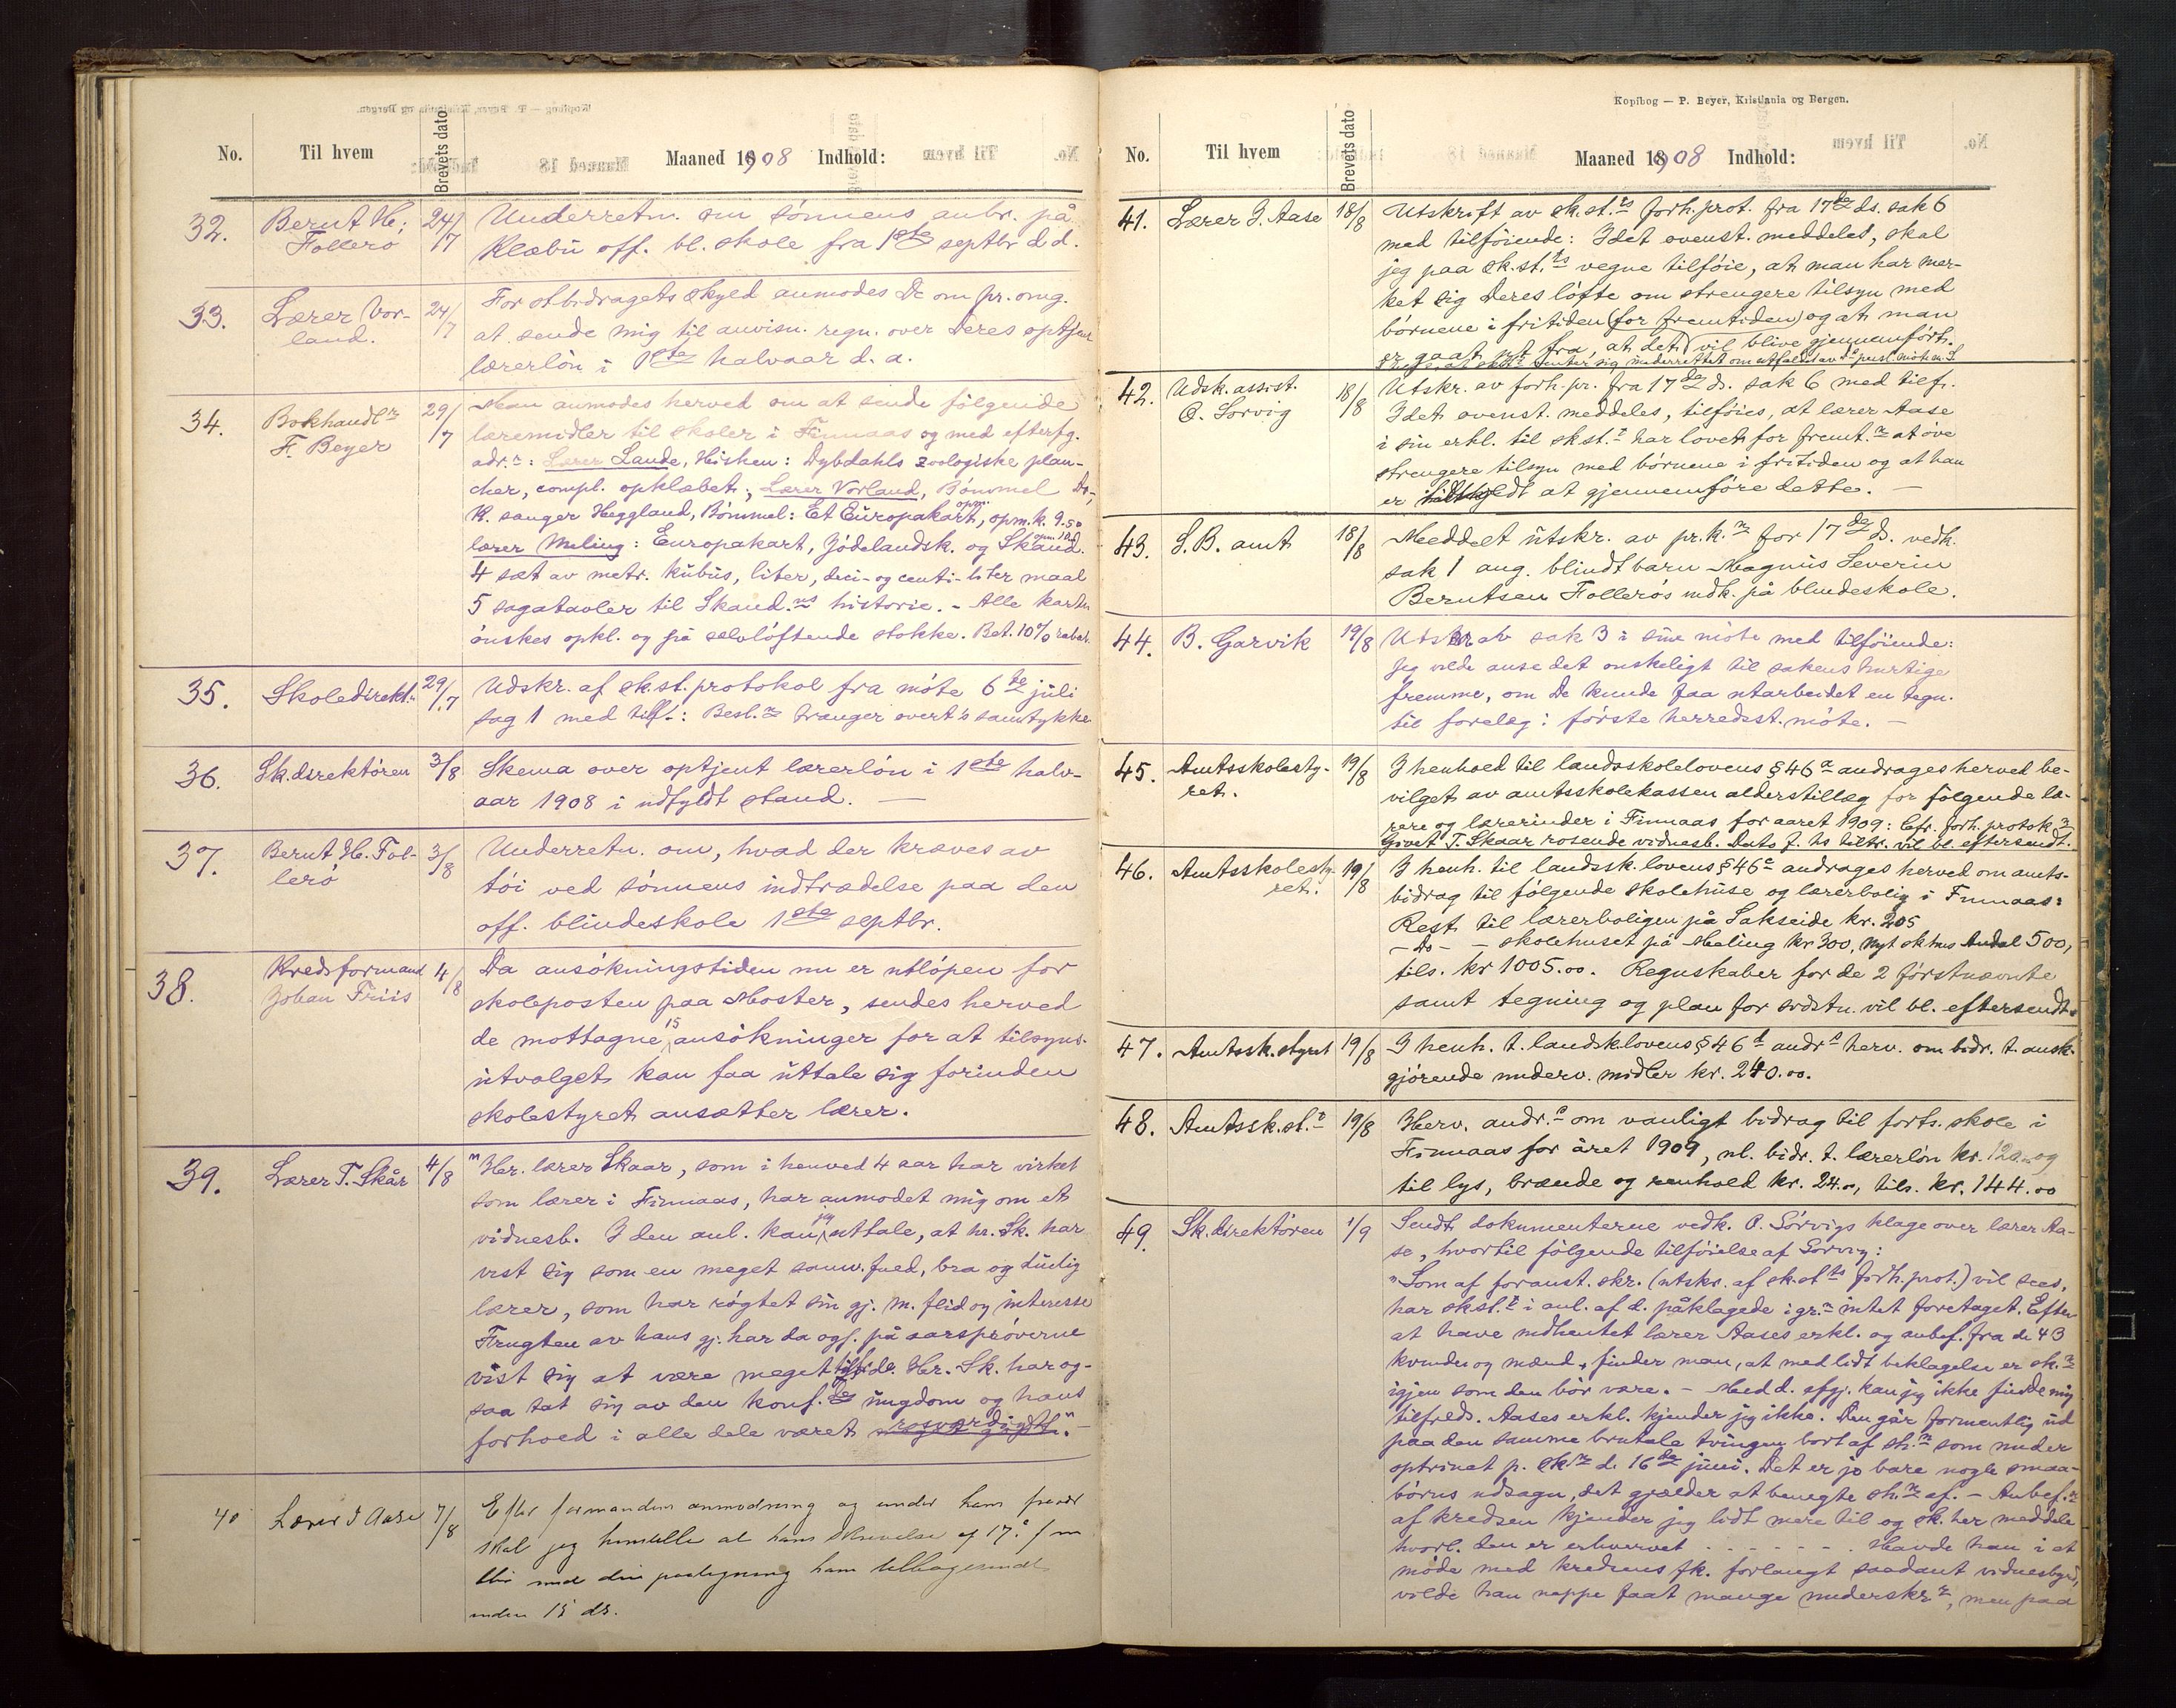 Kopibog — P. Beyer, Kristiania og Bergen.
No. Til hvem Brevets dato Maaned 1908 Indhold:
32. Bernt H. Follerö 24/7 Underretn. om sönnens anbr. på
Klæbü off. bl. skole fra 1ste septbr d.d.
33. Lærer Vorland. 24/7 For stbidragets skyld anmodes De om pr. omg.
at sende mig til anvisn. regn. over Deres optjent
lærerlön i 1ste halvaar d. a.
34. Bokhandlr F. Beyer 29/7 Man anmodes herved om at sende fölgende
læremidler til skoler i Finnaas og med efterfg.
adr.r: Lærer Lande, Hisken: Dybdahls zoologiske plan-
cher, compl. opklæbet; Lærer Vorland, Bömmel Do,
K. sanger Heggland, Bömmel: Et Europakart, opm. k. 9.50
lærer Meling: Europakart, Jödelandsk. og Skand.
4 sæt av metr. kübus, liter, deci- og centi-liter maal
5 sagatavler til Skand.ns historie. - Alle karter
önskes opkl. og på selvlöftende stokke. Bet. 10% rabat.
35. Skoledirekt. 29/7 Udskr. af sk.st. protokol fra möte 6te jüli
sag 1 med tilf.: Besl.n trænger overt's samtykke.
36. Sk.direktören 3/8 Skema over optjent lærerlön i 1ste halv-
aar 1908 i udfyldt stand. —
37. Bernt H. Follerö 3/8 Underretn. om, hvad der kræves av
töi ved sönnens indtrædelse paa den
off. blindeskole 1ste septbr.
38. Kredsformand Johan Friis 4/8 Da ansökningstiden nu er utlöpen for
skoleposten paa Moster, sendes herved
de mottagne 15 ansökninger for at tilsyns-
ütvalget kan faa üttale sig forinden
skolestyret ansætter lærer.
39. Lærer T. Skår 4/8 "Hr. lærer Skaar, som i henved 4 aar har virket
som lærer i Finnaas, har anmodet mig om et
vidnesb. I den anl. kan jeg uttale, at hr. Sk. har
vist sig som en meget samv.fued, bra og dü­lig
lærer, som har rögtet sin gj. m. flid og interesse
Frugten av hans gj. har da ogs. på aarspröverne
vist sig at være meget tilfr. de. Hr. Sk. har og-
saa tat sig av den konf.de üngdom og hans
forhold i alle dele været rosværdigt".
40 Lærer J Aase 7/8 Efter formandens anmodning og under hans fravær
skal jeg henstille at hans skrivelse af 17. f m
blir med din paategning ham tilbagesendt
inden 15 ds.
Kopibog — P. Beyer, Kristiania og Bergen.
No. Til hvem Brevets dato Maaned 1908 Indhold:
41. Lærer J. Aase 18/8 Utskrift av sk.st.ts forh.prot. fra 17de ds. sak 6
med tilföiende: Idet ovenst. meddeles, skal
jeg paa sk.st.ts vegne tilföie, at man har mer-
ket sig Deres löfte om strengere tilsyn med
börnene i fritiden (for fremtiden) og at man
er gaat ut fra, at det vil blive gjennemfört.
42. Udsk.assist. O. Sörvig 18/8 Utskr. av forh.pr. fra 17de ds. sak 6 med tilf.
Idet ovenst. meddeles, tilföies, at lærer Aase
i sin erkl. til skst.t har lovet for fremt.n at öve
strengere tilsyn med börnene i fritiden og at han
er at gjennemföre dette. —
43. S. B. amt 18/8 Meddelt ütskr. av pr.k.n for 17de ds. vedk.
sak 1 ang. blindt barn Magnüs Severin
Berntsen Follerös indk. på blindeskole.
44. B. Garvik 19/8 Utskr av sak 3 i sine möte med tilföiende:
Jeg vilde anse det önskeligt til sakens hurtige
fremme, om De kunde faa utarbeidet en tegn.
til forelæg i förste herredsst. möte. —
45. Amtsskolesty- ret. 19/8 I henhold til landsskolelovens § 46 a andrages herved be-
vilget av amtsskolekassen alderstillæg for fölgende læ-
rere og lærerinder i Finnaas for aaret 1909: Cfr. forh. protok.
Givet T. Skaar rosende vidnesb. Dato f. hs tiltr. vil bl. eftersendt.
46. Amtsskolesty- ret. 19/8 I henh. til landssk.lovens § 46 c andrages herved om amts-
bidrag til fölgende skolehüse og lærerbolig i Finnaas:
Rest til lærerboligen på Sakseide kr. 205
- Do - - skolehuset på Meling kr 300, Nyt skhus Andal 500,
tils. kr 1005.00. Regnskaber for de 2 förstnævnte
samt tegning og plan for sidstn. vil bl. eftersendt.
47. Amtssk.styret 19/8 I henh. t. landsk.lovens § 46 d andr.s herv. om bidr. t. ansk.
gjörende underv. midler kr. 240.00.
48. Amtssk.st.t 19/8 Herv. andr.s om vanligt bidrag til forts. skole i
Finnaas for året 1909, nl. bidr. t. lærerlön kr. 120.- og
til lys, brænde og renhold kr. 24.-, tils. kr. 144.00
49. Sk.direktören 1/9 Sendt dokumenterne vedk. O. Sörvigs klage over lærer Aa-
se, hvortil fölgende tilföielse af Sörvig:
"Som af foranst. skr. (utskr. af sk.st.ts forh.prot.) vil sees,
har skst.t i anl. af d. påklagede i gr.n intet foretaget. Efter
at have indhentet lærer Aases erkl. og anbef. fra de 43
kvinder og mænd, finder man, at med lidt beklagelse er sk.n
igjen som den bör være. - Med d. afgj. kan jeg ikke finde mig
tilfreds. Aases erkl. kjender jeg ikke. Den går formentlig üd
paa den samme brutale tvingen bort af sh.n som under
optrinet p. sk.n d. 16de jüni. Det er jo bare nogle smaa-
börns udsagn, det gjælder at benegte sh.n af. - Anbef.n
af kredsen kjender jeg lidt mere til og sk. her meddele
hvorl. den er erhvervet . . . . . . . . Havde han i et
möde med kredsens fk. forlangt saadant vidnesbyrd,
vilde han neppe faat mange underskr.r, men paa